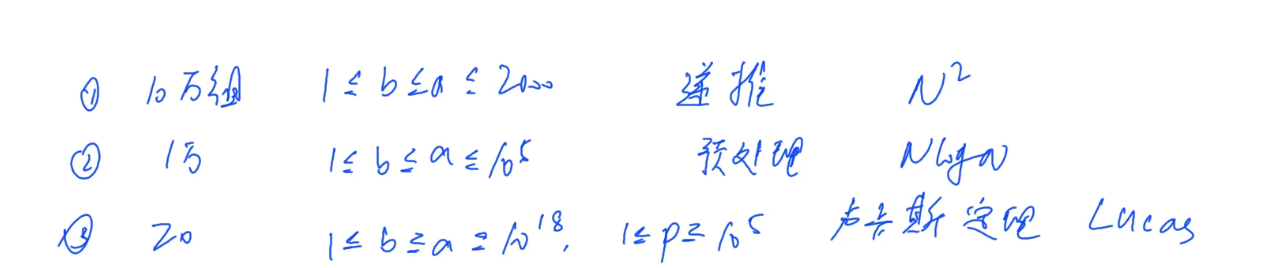 ① 10万组 1 ≤ b ≤ a ≤ 2000 递推 N²
② 1万 1 ≤ b ≤ a ≤ 10⁵ 预处理 NlogN
③ 20 1 ≤ b ≤ a ≤ 10¹⁸, 1 ≤ p ≤ 10⁵ 卢卡斯定理 Lucas